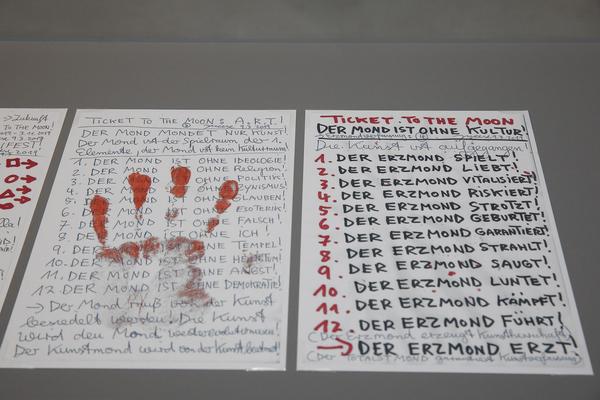 → Zukunft
TO THE MOON!
FEST!
TICKET TO THE MOON: A.R.T.!
DER MOND MONDET NUR KUNST!
Der Mond ist der Spielraum der 1.
Elemente, der Mond ist kein Kulturraum!
1. DER MOND IST OHNE IDEOLOGIE!
2. DER MOND IST OHNE Religion!
3. DER MOND IST OHNE POLITIK!
4. DER MOND IST OHNE ZYNISMUS!
5. DER MOND IST OHNE GLAUBEN!
6. DER MOND IST OHNE ESOTERIK!
7. DER MOND IST OHNE FALSCH!
8. DER MOND IST OHNE ICH!
9. DER MOND IST OHNE TEMPEL!
10. DER MOND IST OHNE
11. DER MOND IST OHNE ANGST!
12. DER MOND IST OHNE DEMOKRATIE!
→ Der Mond muß von der Kunst
beseedelt werden! Die Kunst
wird den Mond
Der Kunstmond wird von der Kunst
TICKET TO THE MOON
DER MOND IST OHNE KULTUR!
Die Kunst ist aufgegangen!
1. DER ERZMOND SPIELT!
2. DER ERZMOND LIEBT!
3. DER ERZMOND VITALISIERT!
4. DER ERZMOND RISKIERT!
5. DER ERZMOND STROTZT!
6. DER ERZMOND GEBURTET!
7. DER ERZMOND GARANTIERT!
8. DER ERZMOND STRAHLT!
9. DER ERZMOND SAUGT!
10. DER ERZMOND LUNTET!
11. DER ERZMOND KÄMPFT!
12. DER ERZMOND FÜHRT!
(Der Erzmond erzeugt
→ DER ERZMOND ERZT!
(Der TOTALSTMOND garantiert